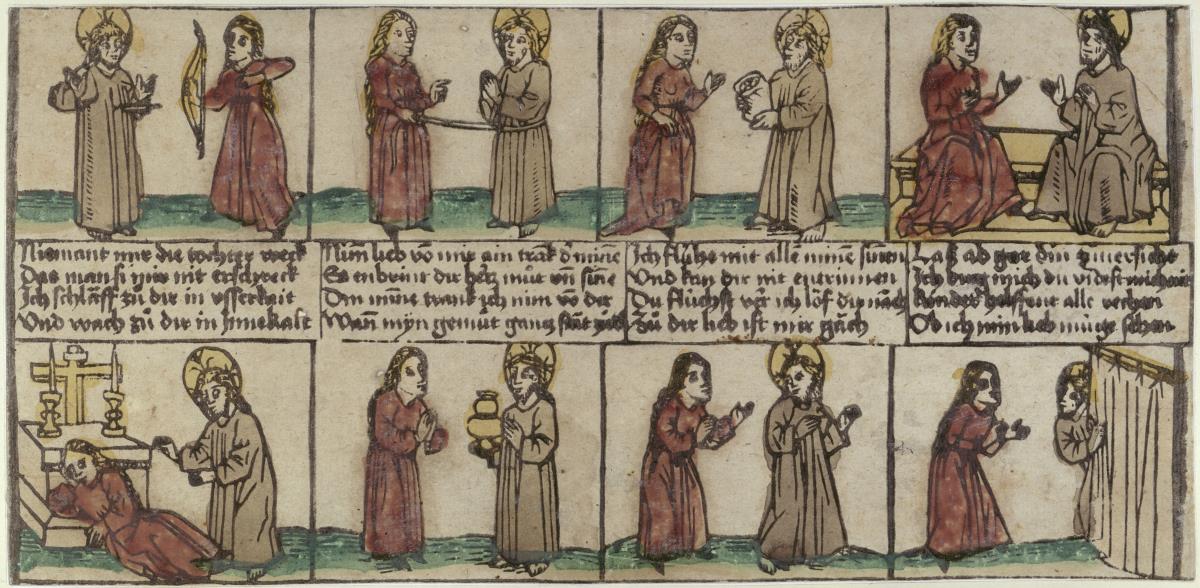 Niemant mir die tochter weck
Das man si mir nit erschreck
Ich schlaff zů dir in usserkait
Vnd wach zů dir in Innekait
Nim lieb vō mir ain trāk d minne
Es enbrint dir hertz můt vn̄ sinne
Din minne trank ich nim vō dir
Wan̄ myn gemůt gantz stāt
Ich flühe mit allē minē sinen
Vnd kan dir nit entrinnen
Du flüchst vor ich lof dir nach
Zů dir lieb ist mir gäch
Laß ab gar din zůuersicht
Ich birg mich du vindest mich nit
helffent alle
Ob ich min lieb müge sehen